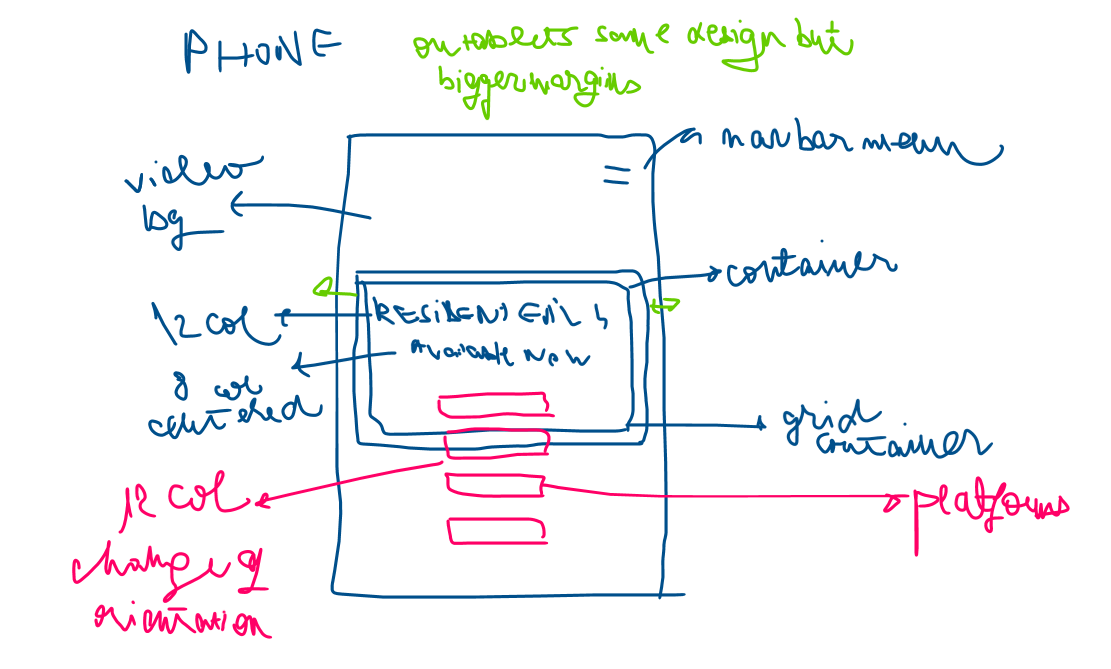 PHONE
on tablets same design but
bigger margins
navbar menu
video
bg
container
12 col
RESIDENT EVIL 4
Available now
8 col
centered
grid
container
12 col
platforms
change of
orientation